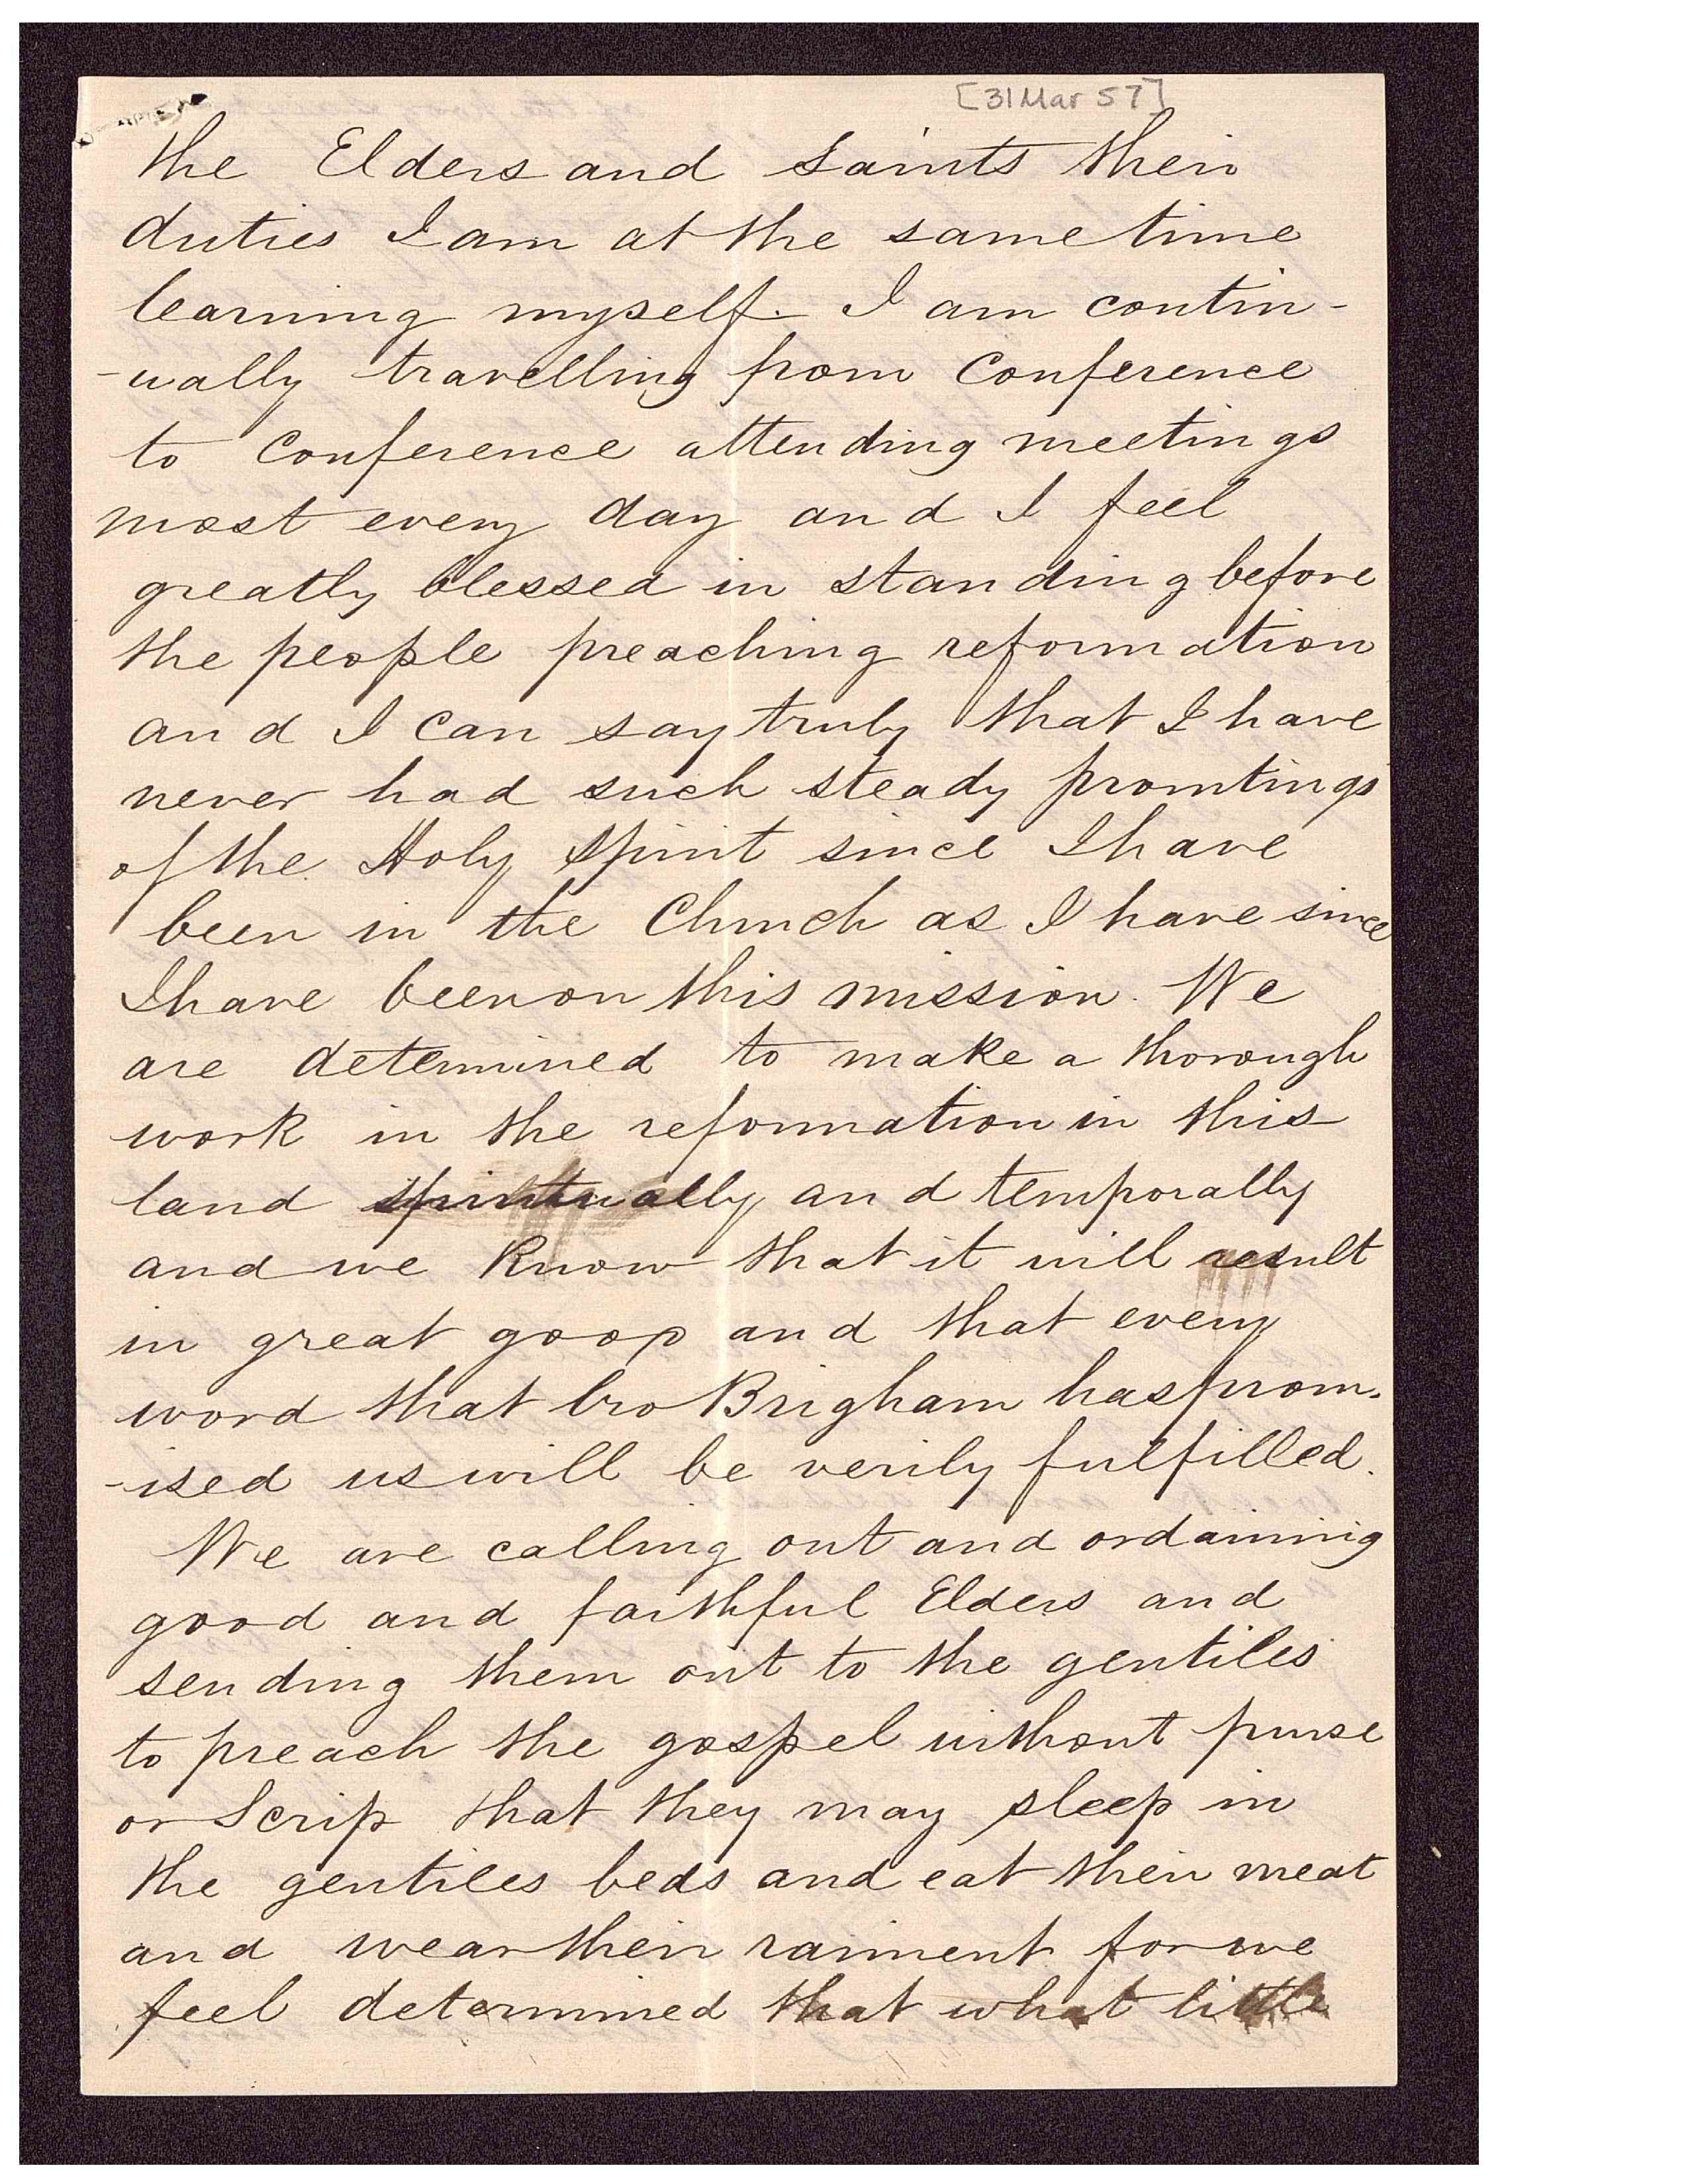 [31 Mar 57]
the Elders and Saints their
duties I am at the same time
learning myself. I am contin-
-ually travelling from Conference
to Conference attending meetings
most every day and I feel
greatly blessed in standing before
the people preaching reformation
and I can say truly that I have
never had such steady promtings
of the Holy Spirit since I have
been in the Church as I have since
I have been on this mission. We
are determined to make a thorough
work in the reformation in this
land spiritually and temporally
and we know that it will result
in great goop and that every
word that bro Brigham has prom-
-ised us will be verily fulfilled.
We are calling out and ordaining
good and faithful Elders and
sending them out to the gentiles
to preach the gospel without purse
or Scrip that they may sleep in
the gentiles beds and eat their meat
and wear their raiment for we
feel determined that what little